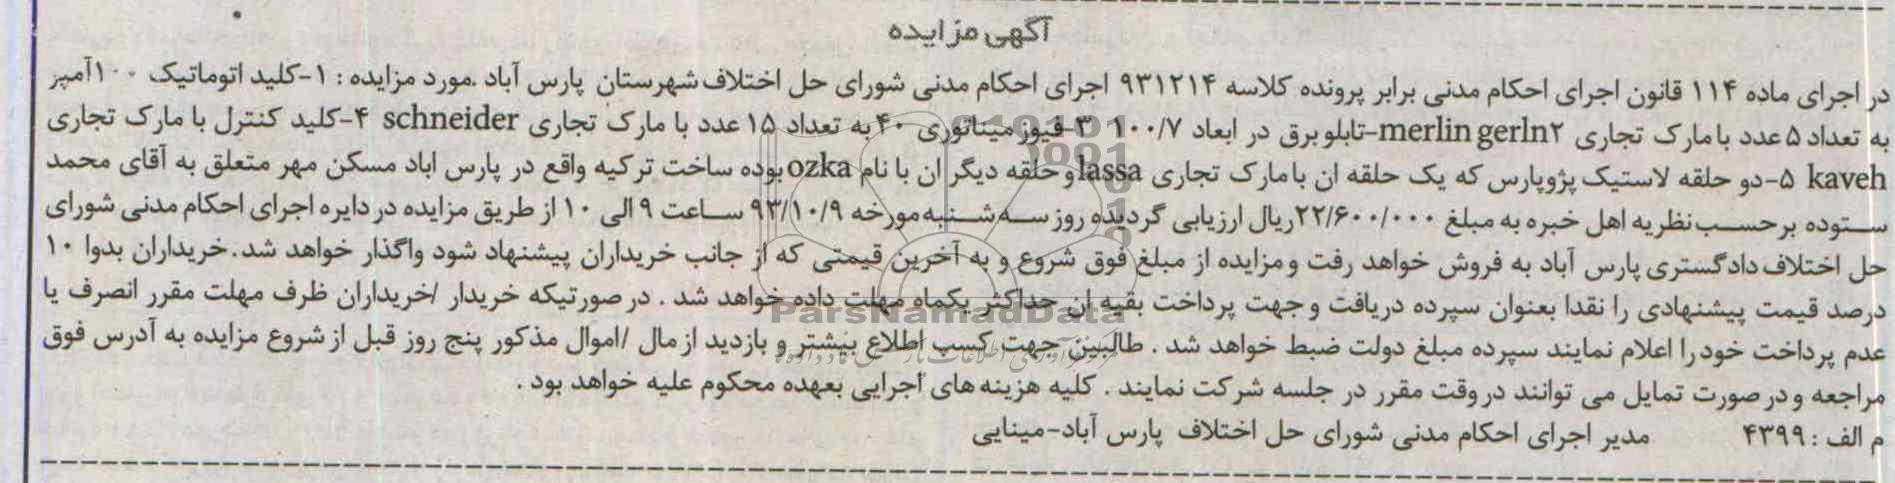 آگهی مزایده
در اجرای ماده ۱۱۴ قانون اجرای احکام مدنی برابر پرونده کلاسه ۹۳۱۲۱۴ اجرای احکام مدنی شورای حل اختلاف شهرستان پارس آباد .مورد مزایده : ۱-کلید اتوماتیک ۱۰۰آمپر
به تعداد ۵ عدد با مارک تجاری merlin gerln۲-تابلو برق در ابعاد ۱۰۰/۷ ۳-فیوز میناتوری ۴۰ به تعداد ۱۵ عدد با مارک تجاری schneider ۴-کلید کنترل با مارک تجاری
kaveh ۵-دو حلقه لاستیک پژوپارس که یک حلقه ان با مارک تجاری lassa و حلقه دیگر ان با نام ozka بوده ساخت ترکیه واقع در پارس اباد مسکن مهر متعلق به آقای محمد
ستوده برحسب نظریه اهل خبره به مبلغ ۲۲/۶۰۰/۰۰۰ریال ارزیابی گردیده روز سه شنبه مورخه ۹۳/۱۰/۹ ساعت ۹ الی ۱۰ از طریق مزایده در دایره اجرای احکام مدنی شورای
حل اختلاف دادگستری پارس آباد به فروش خواهد رفت و مزایده از مبلغ فوق شروع و به آخرین قیمتی که از جانب خریداران پیشنهاد شود واگذار خواهد شد.خریداران بدوا ۱۰
درصد قیمت پیشنهادی را نقدا بعنوان سپرده دریافت و جهت پرداخت بقیه ان حداکثر یکماه مهلت داده خواهد شد . در صورتیکه خریدار /خریداران ظرف مهلت مقرر انصرف یا
عدم پرداخت خود را اعلام نمایند سپرده مبلغ دولت ضبط خواهد شد . طالبین جهت کسب اطلاع بیشتر و بازدید از مال /اموال مذکور پنج روز قبل از شروع مزایده به آدرس فوق
مراجعه و در صورت تمایل می توانند در وقت مقرر در جلسه شرکت نمایند . کلیه هزینه های اجرایی بعهده محکوم علیه خواهد بود .
م الف : ۴۳۹۹ مدیر اجرای احکام مدنی شورای حل اختلاف پارس آباد-مینایی
ParsNamadData